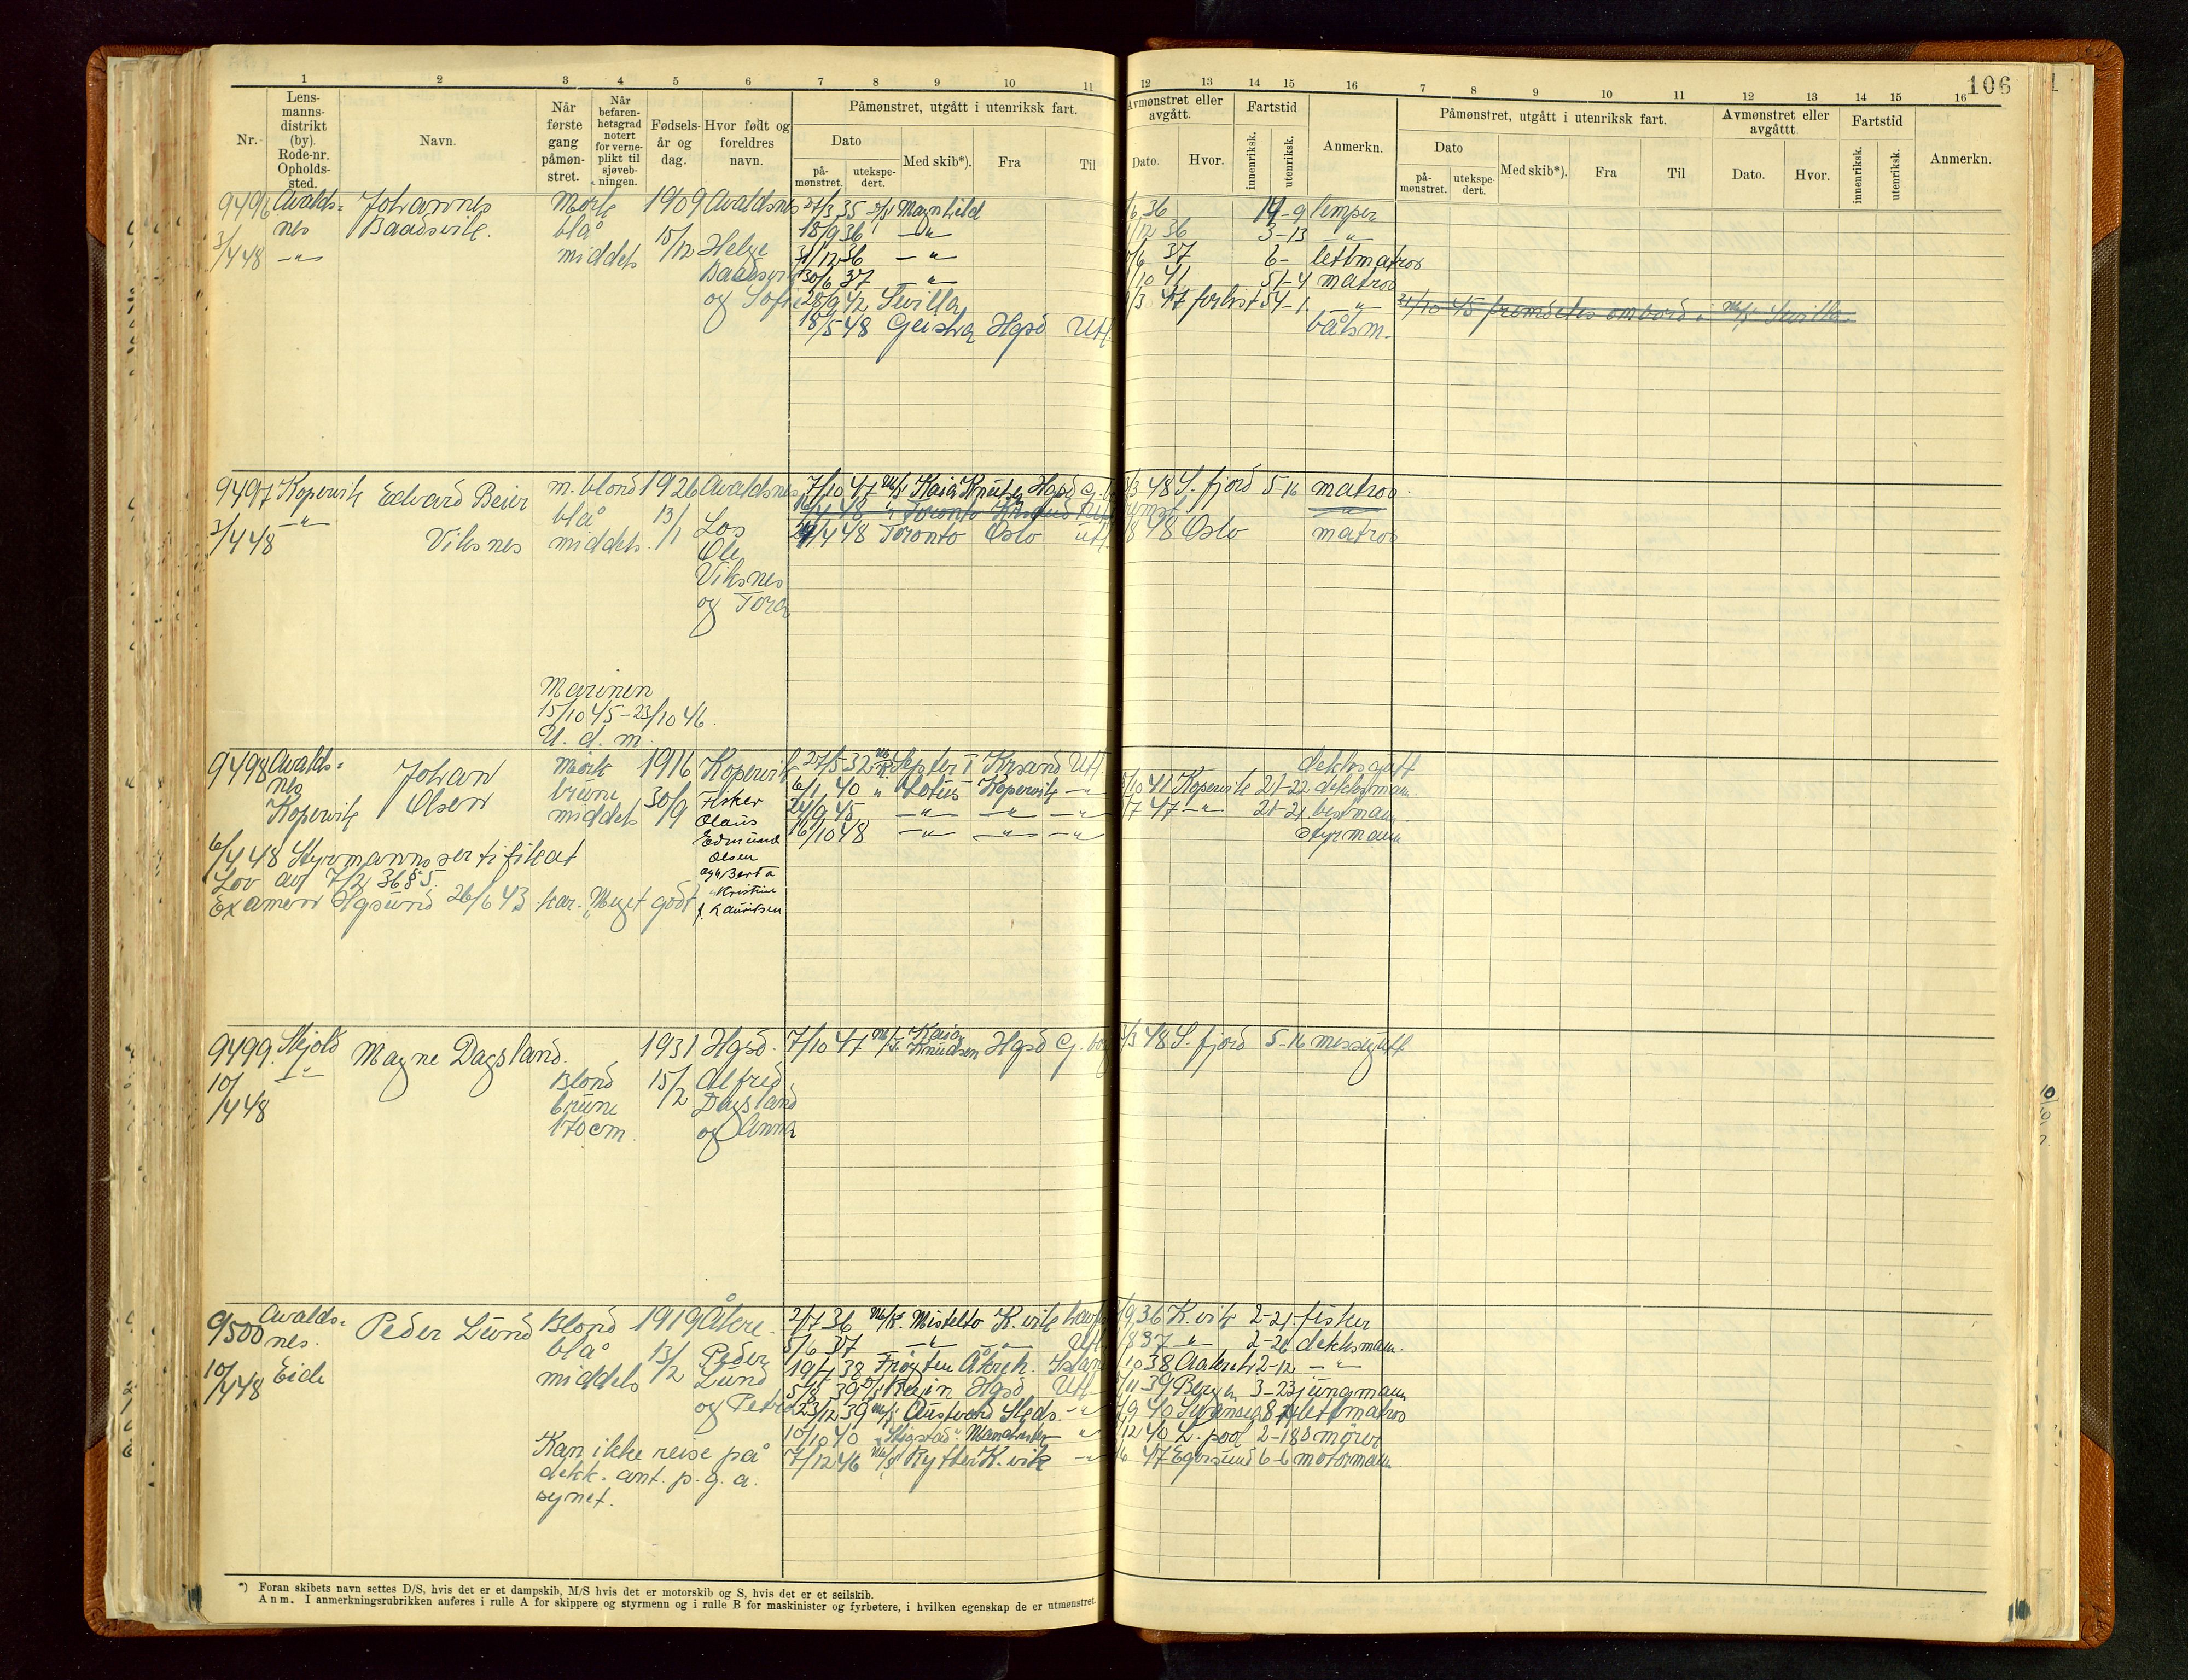 106
1 2 3 4 5 6 7 8 9 10 11 12 13 14 15 16 7 8 9 10 11 12 13 14 15 16
Nr.
Lens-
manns-
distrikt
(by).
Rode-nr.
Opholds-
sted.
Navn.
Når
første
gang
påmøn-
stret.
Når
befaren-
hetsgrad
notert
for verne-
plikt til
sjøveb-
ningen.
Fødsels-
år og
dag.
Hvor født og
foreldres
navn.
Påmønstret, utgått i utenriksk fart.
Dato
på-
mønstret.
utekspe-
dert.
Med skib*).
Fra
Til
Avmønstret eller
avgått.
Dato.
Hvor.
Fartstid
innenriksk.
utenriksk.
Anmerkn.
Påmønstret, utgått i utenriksk fart.
Dato
på-
mønstret.
utekspe-
dert.
Med skib*).
Fra
Til
Avmønstret eller
avgåttt.
Dato.
Hvor.
Fartstid
innenriksk.
utenriksk.
Anmerkn.
9496 Avalds- Johannes Mørk 1909 Avaldsnes 27/3 35 D/S Magnhild /6 36 14-9 lemper
nes Baadsvik. blå 15/12 Helge 18/9 36 -"- /12 36 3-13 -"-
3/4 48 -"- middels Baadsvik 31/12 36 -"- /6 37 6- lettmatros
30/6 37 -"- /10 41 51-4 matros
og Sofie 28/9 42 Sevilla /3 47 forlist 54-1. " 31/10 45 fremdeles ombord i M/S Sevilla.
18/5 48 Geisha Hgsd Utl. båtsm.
9497 Kopervik Edvard Beier m. blond 1926 Avaldsnes 7/10 47 M/S Kaia Knutsen Hgsd G. /3 48 S. fjord 5-16 matros.
-"- blå 13/1 Los /4 48 " Toronto Krsand Utl
3/4 48 Viksnes middels. Ole 24/4 48 Toronto Oslo utl. 8 48 Oslo matros
Viksnes
og Tora
Marinen
15/10 45-23/10 46.
U. d. m.
9498 Avalds- Johan Mørk 1916 Kopervik 27/5-32 M/K Septer I Krsand Utl. dekksgutt
nes Olsen brune 30/9 Fisker 6/1 40 " Lotus Kopervik -"- /10 41 Kopervik 21-22 dekksmann.
Kopervik middels Olaus 24/9 45 -"- -"- -"- /7 47 -"- 21-21 bestmann
Edmund 16/10 48 -"- -"- -"- Styrmann
6/4 48 Styrmannssertifikat Olsen
Lov av 7/2 36 § 5. og Berta
Examen Hgsund 26/6 43 kar. "Meget godt" Kristine
f. Lauritsen
9499. Skjold Magne Dagsland. 1931 Hgsd. 7/10 47 M/T Kaia Knudsen Hgsd G. /3 48 S. fjord 5-16 messegutt.
10/4 48 -"- Blond 15/2 Alfred
brune Dagsland
170 cm. og Anna
9500 Avalds- Peder Lund Blond 1919 Åkre. 2/7 36 M/K. Mistelto K.vik havfi /9 36 K.vik 2-21 fisker
nes. blå 13/2 Peder 5/6 37 -"- -"- Utl. /8 37 " 2-26 dekksmann.
10/4 48 Eide middels Lund 19/7 38 Frøyten Åkreh. Island /10 38 Aakreh. 2-12 -"-
og Petra 5/8 39 D/S Regin Hgsd Utl. /11 39 Bergen 3-23 jungmann
23/12 39 M/S Austvard Sleds. -"- /9 40 Swansea 8 lettmatros
Kan ikke reise på 10/10 40 " Skjestad" Manchester " /12 40 L.pool 2-18
dekk. ant. p.g.a. 7/12 46 M/S Rytter K.vik -"- /6 47 Egersund 6-6 motormann.
synet.
*) Foran skibets navn settes D/S, hvis det er et dampskib, M/S hvis det er motorskib og S, hvis det er et seilskib.
Anm. I anmerkningsrubrikken anføres i rulle A for skippere og styrmenn og i rulle B for maskinister og fyrbøtere, i hvilken egenskap de er utmønstret.